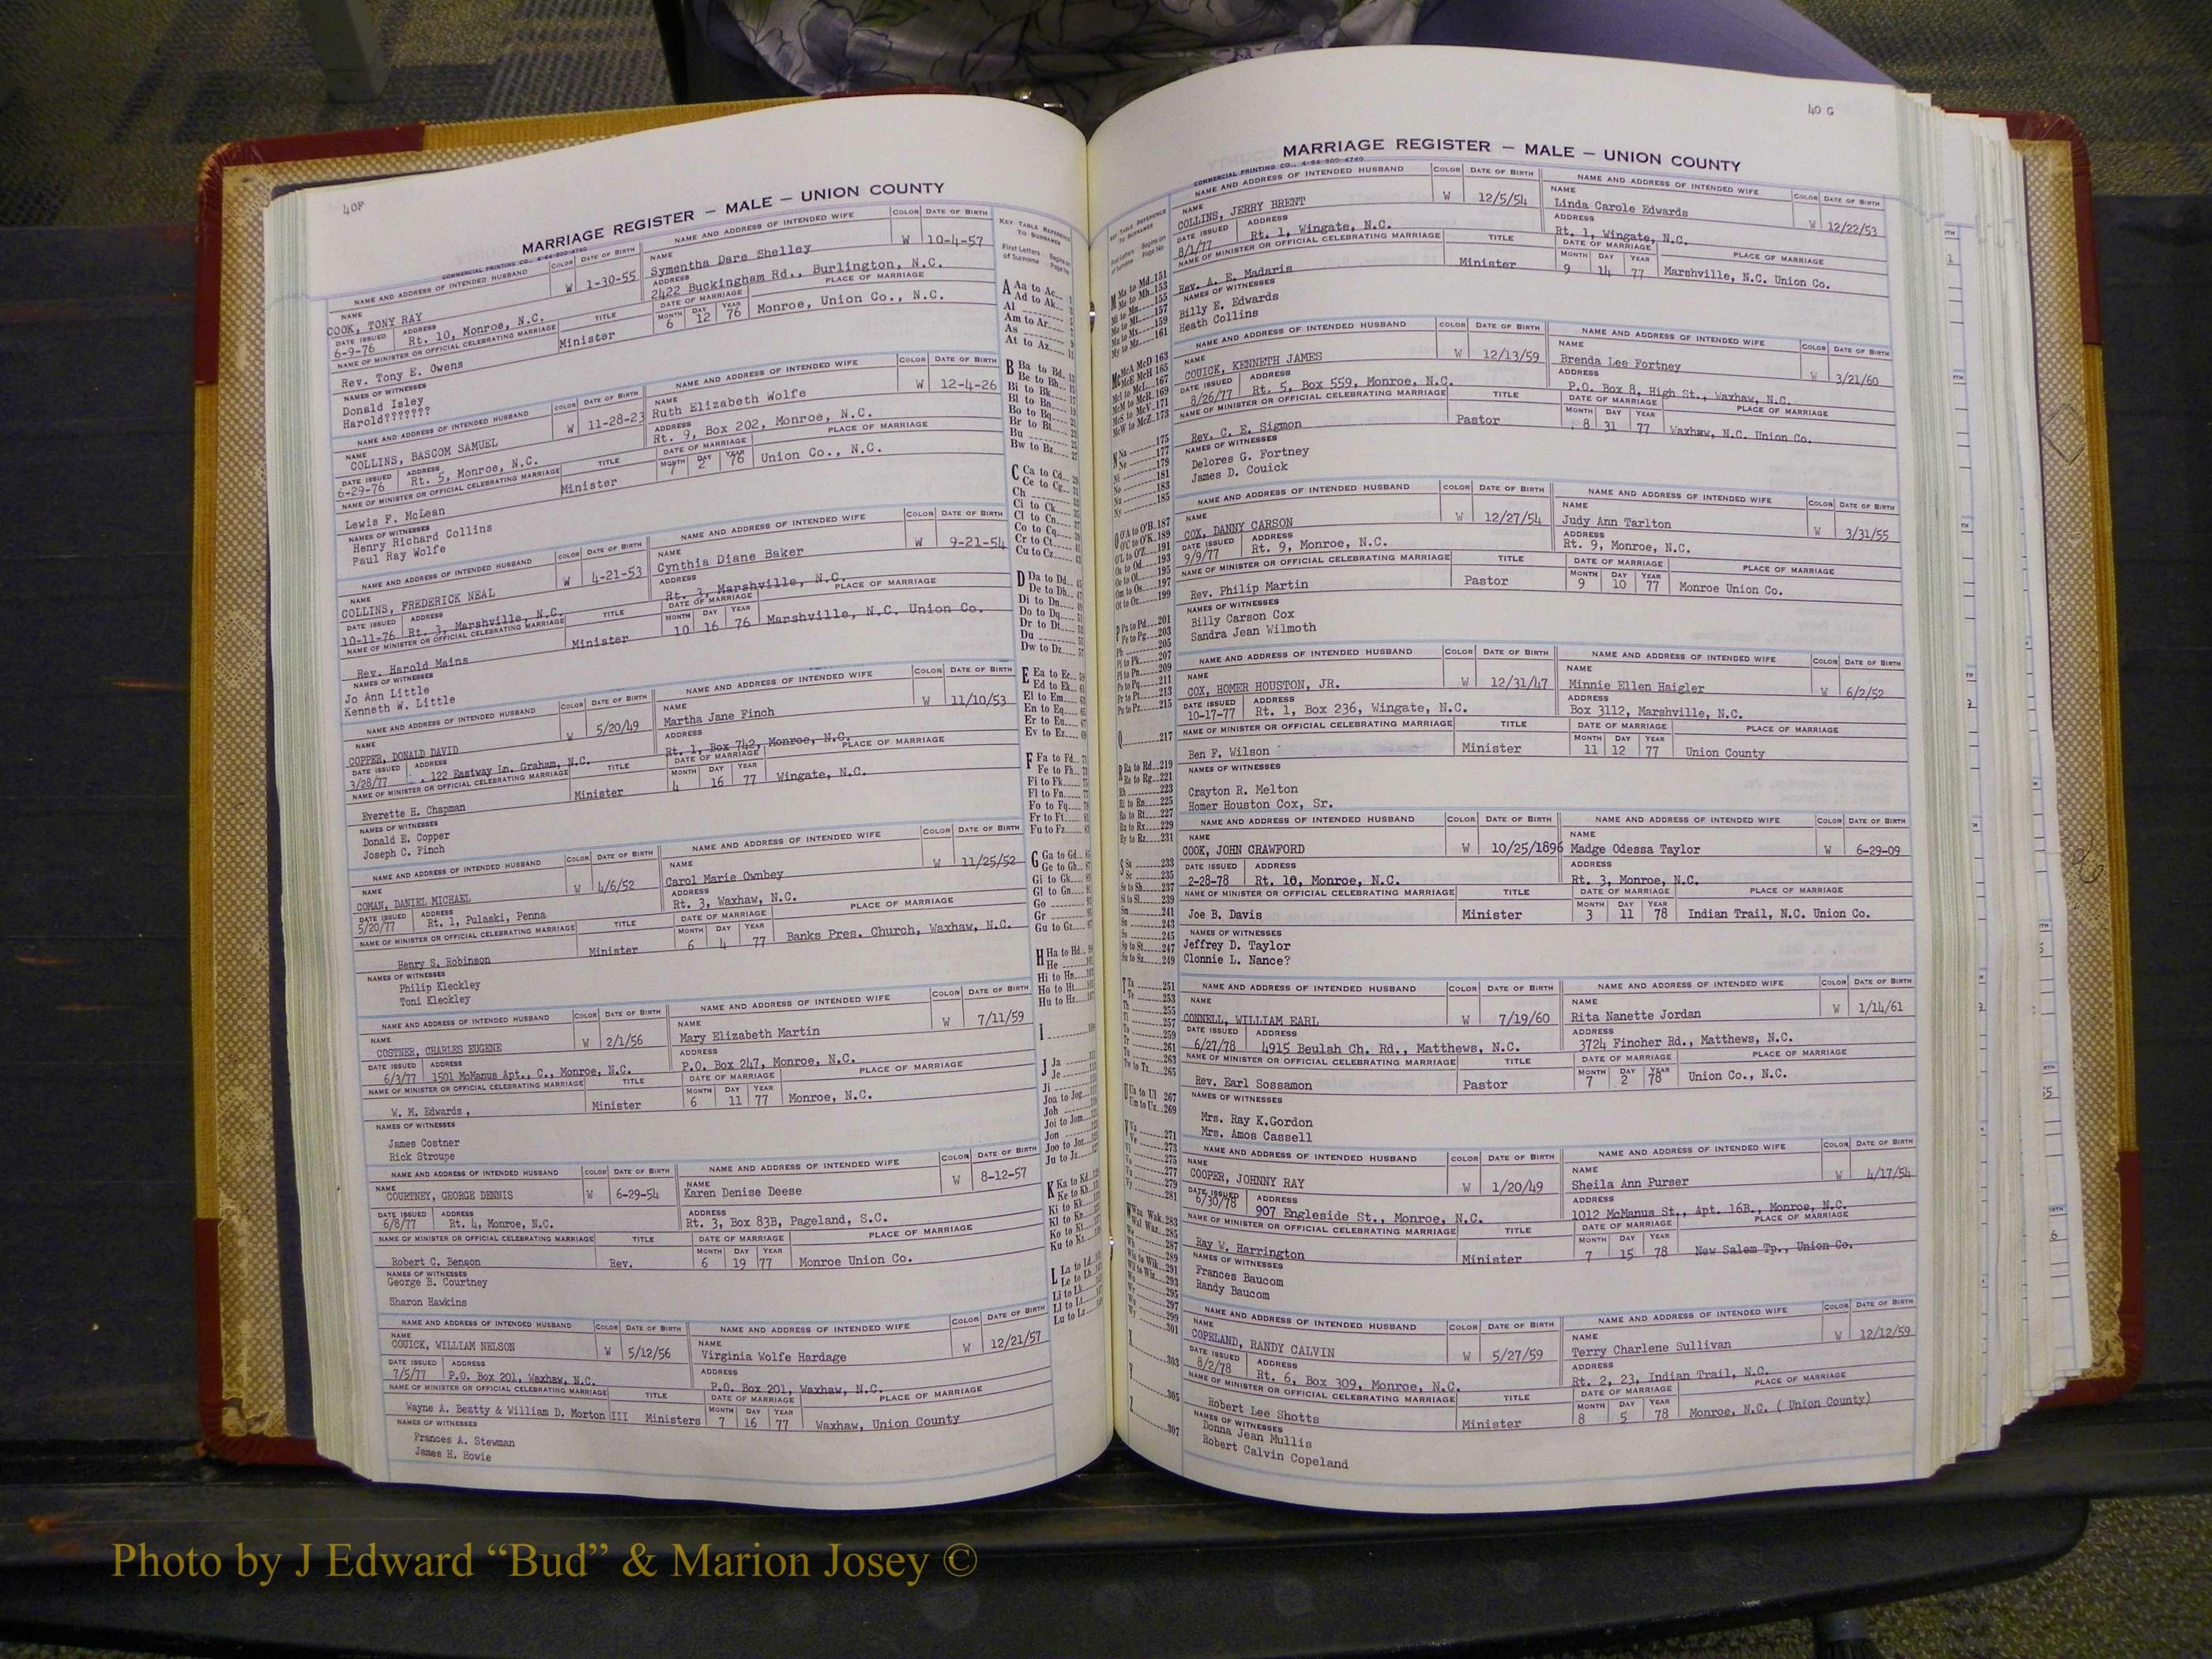 40F
MARRIAGE REGISTER — MALE — UNION COUNTY
COMMERCIAL PRINTING CO., 4-64-500-4740
NAME AND ADDRESS OF INTENDED HUSBAND COLOR DATE OF BIRTH NAME AND ADDRESS OF INTENDED WIFE COLOR DATE OF BIRTH
NAME COOK, TONY RAY W 1-30-55 NAME Symentha Dare Shelley W 10-4-57
DATE ISSUED 6-9-76 ADDRESS Rt. 10, Monroe, N.C. ADDRESS 2422 Buckingham Rd., Burlington, N.C.
NAME OF MINISTER OR OFFICIAL CELEBRATING MARRIAGE TITLE DATE OF MARRIAGE PLACE OF MARRIAGE
Rev. Tony E. Owens Minister MONTH 6 DAY 12 YEAR 76 Monroe, Union Co., N.C.
NAMES OF WITNESSES
Donald Isley
Harold???????
NAME AND ADDRESS OF INTENDED HUSBAND COLOR DATE OF BIRTH NAME AND ADDRESS OF INTENDED WIFE COLOR DATE OF BIRTH
NAME COLLINS, BASCOM SAMUEL W 11-28-23 NAME Ruth Elizabeth Wolfe W 12-4-26
DATE ISSUED 6-29-76 ADDRESS Rt. 5, Monroe, N.C. ADDRESS Rt. 9, Box 202, Monroe, N.C.
NAME OF MINISTER OR OFFICIAL CELEBRATING MARRIAGE TITLE DATE OF MARRIAGE PLACE OF MARRIAGE
Lewis F. McLean Minister MONTH 7 DAY 2 YEAR 76 Union Co., N.C.
NAMES OF WITNESSES
Henry Richard Collins
Paul Ray Wolfe
NAME AND ADDRESS OF INTENDED HUSBAND COLOR DATE OF BIRTH NAME AND ADDRESS OF INTENDED WIFE COLOR DATE OF BIRTH
NAME COLLINS, FREDERICK NEAL W 4-21-53 NAME Cynthia Diane Baker W 9-21-54
DATE ISSUED 10-11-76 ADDRESS Rt. 3, Marshville, N.C. ADDRESS Rt. 3, Marshville, N.C.
NAME OF MINISTER OR OFFICIAL CELEBRATING MARRIAGE TITLE DATE OF MARRIAGE PLACE OF MARRIAGE
Rev. Harold Mains Minister MONTH 10 DAY 16 YEAR 76 Marshville, N.C. Union Co.
NAMES OF WITNESSES
Jo Ann Little
Kenneth W. Little
NAME AND ADDRESS OF INTENDED HUSBAND COLOR DATE OF BIRTH NAME AND ADDRESS OF INTENDED WIFE COLOR DATE OF BIRTH
NAME COPPER, DONALD DAVID W 5/20/49 NAME Martha Jane Finch W 11/10/53
DATE ISSUED 3/28/77 ADDRESS 122 Eastway Ln. Graham, N.C. ADDRESS Rt. 1, Box 742, Monroe, N.C.
NAME OF MINISTER OR OFFICIAL CELEBRATING MARRIAGE TITLE DATE OF MARRIAGE PLACE OF MARRIAGE
Everette H. Chapman Minister MONTH 4 DAY 16 YEAR 77 Wingate, N.C.
NAMES OF WITNESSES
Donald E. Copper
Joseph C. Finch
NAME AND ADDRESS OF INTENDED HUSBAND COLOR DATE OF BIRTH NAME AND ADDRESS OF INTENDED WIFE COLOR DATE OF BIRTH
NAME COMAN, DANIEL MICHAEL W 4/6/52 NAME Carol Marie Ownbey W 11/25/52
DATE ISSUED 5/20/77 ADDRESS Rt. 1, Pulaski, Penna ADDRESS Rt. 3, Waxhaw, N.C.
NAME OF MINISTER OR OFFICIAL CELEBRATING MARRIAGE TITLE DATE OF MARRIAGE PLACE OF MARRIAGE
Henry S. Robinson Minister MONTH 6 DAY 4 YEAR 77 Banks Pres. Church, Waxhaw, N.C.
NAMES OF WITNESSES
Philip Kleckley
Toni Kleckley
NAME AND ADDRESS OF INTENDED HUSBAND COLOR DATE OF BIRTH NAME AND ADDRESS OF INTENDED WIFE COLOR DATE OF BIRTH
NAME COSTNER, CHARLES EUGENE W 2/1/56 NAME Mary Elizabeth Martin W 7/11/59
DATE ISSUED 6/3/77 ADDRESS 1501 McManus Apt., C., Monroe, N.C. ADDRESS P.O. Box 247, Monroe, N.C.
NAME OF MINISTER OR OFFICIAL CELEBRATING MARRIAGE TITLE DATE OF MARRIAGE PLACE OF MARRIAGE
W. M. Edwards, Minister MONTH 6 DAY 11 YEAR 77 Monroe, N.C.
NAMES OF WITNESSES
James Costner
Rick Stroupe
NAME AND ADDRESS OF INTENDED HUSBAND COLOR DATE OF BIRTH NAME AND ADDRESS OF INTENDED WIFE COLOR DATE OF BIRTH
NAME COURTNEY, GEORGE DENNIS W 6-29-54 NAME Karen Denise Deese W 8-12-57
DATE ISSUED 6/8/77 ADDRESS Rt. 4, Monroe, N.C. ADDRESS Rt. 3, Box 83B, Pageland, S.C.
NAME OF MINISTER OR OFFICIAL CELEBRATING MARRIAGE TITLE DATE OF MARRIAGE PLACE OF MARRIAGE
Robert C. Benson Rev. MONTH 6 DAY 19 YEAR 77 Monroe Union Co.
NAMES OF WITNESSES
George B. Courtney
Sharon Hawkins
NAME AND ADDRESS OF INTENDED HUSBAND COLOR DATE OF BIRTH NAME AND ADDRESS OF INTENDED WIFE COLOR DATE OF BIRTH
NAME COUICK, WILLIAM NELSON W 5/12/56 NAME Virginia Wolfe Hardage W 12/21/57
DATE ISSUED 7/5/77 ADDRESS P.O. Box 201, Waxhaw, N.C. ADDRESS P.O. Box 201, Waxhaw, N.C.
NAME OF MINISTER OR OFFICIAL CELEBRATING MARRIAGE TITLE DATE OF MARRIAGE PLACE OF MARRIAGE
Wayne A. Beatty & William D. Morton III Ministers MONTH 7 DAY 16 YEAR 77 Waxhaw, Union County
NAMES OF WITNESSES
Frances A. Stewman
James H. Howie
KEY TABLE REFERENCE TO SURNAMES
First Letters of Surname Begins on Page No.
A Aa to Ac
Ad to Ak
Al
Am to Ar
As
At to Az
B Ba to Bd
Be to Bh
Bi to Bk
Bl to Bn
Bo to Bq
Br to Bt
Bu
Bw to Bz
C Ca to Cd
Ce to Cg
Ch
Ci to Ck
Cl to Cn
Co to Cq
Cr to Ct
Cu to Cz
D Da to Dd
De to Dh
Di to Dn
Do to Dq
Dr to Dt
Du
Dw to Dz
E Ea to Ec
Ed to Ek
El to Em
En to Eq
Er to Eu
Ev to Ez
F Fa to Fd
Fe to Fh
Fi to Fk
Fl to Fn
Fo to Fq
Fr to Ft
Fu to Fz
G Ga to Gd
Ge to Gh
Gi to Gk
Gl to Gn
Go
Gr
Gu to Gz
H Ha to Hd
He
Hi to Hn
Ho to Ht
Hu to Hz
I
J Ja
Je
Ji
Joa to Jog
Joh
Joi to Jom
Jon
Joo to Joz
Ju to Jz
K Ka to Kd
Ke to Kh
Ki to Kk
Kl to Kn
Ko to Kt
Ku to Kz
L La to Ld
Le to Lh
Li to Lk
Ll to Lt
Lu to Lz
40 G
MARRIAGE REGISTER — MALE — UNION COUNTY
COMMERCIAL PRINTING CO., 4-64-500-4740
NAME AND ADDRESS OF INTENDED HUSBAND COLOR DATE OF BIRTH NAME AND ADDRESS OF INTENDED WIFE COLOR DATE OF BIRTH
NAME COLLINS, JERRY BRENT W 12/5/54 NAME Linda Carole Edwards W 12/22/53
DATE ISSUED 8/1/77 ADDRESS Rt. 1, Wingate, N.C. ADDRESS Rt. 1, Wingate, N.C.
NAME OF MINISTER OR OFFICIAL CELEBRATING MARRIAGE TITLE DATE OF MARRIAGE PLACE OF MARRIAGE
Rev. A. E. Madaris Minister MONTH 9 DAY 14 YEAR 77 Marshville, N.C. Union Co.
NAMES OF WITNESSES
Billy E. Edwards
Heath Collins
NAME AND ADDRESS OF INTENDED HUSBAND COLOR DATE OF BIRTH NAME AND ADDRESS OF INTENDED WIFE COLOR DATE OF BIRTH
NAME COUICK, KENNETH JAMES W 12/13/59 NAME Brenda Lee Fortney W 3/21/60
DATE ISSUED 8/26/77 ADDRESS Rt. 5, Box 559, Monroe, N.C. ADDRESS P.O. Box 8, High St., Waxhaw, N.C.
NAME OF MINISTER OR OFFICIAL CELEBRATING MARRIAGE TITLE DATE OF MARRIAGE PLACE OF MARRIAGE
Rev. C. E. Sigmon Pastor MONTH 8 DAY 31 YEAR 77 Waxhaw, N.C. Union Co.
NAMES OF WITNESSES
Delores G. Fortney
James D. Couick
NAME AND ADDRESS OF INTENDED HUSBAND COLOR DATE OF BIRTH NAME AND ADDRESS OF INTENDED WIFE COLOR DATE OF BIRTH
NAME COX, DANNY CARSON W 12/27/54 NAME Judy Ann Tarlton W 3/31/55
DATE ISSUED 9/9/77 ADDRESS Rt. 9, Monroe, N.C. ADDRESS Rt. 9, Monroe, N.C.
NAME OF MINISTER OR OFFICIAL CELEBRATING MARRIAGE TITLE DATE OF MARRIAGE PLACE OF MARRIAGE
Rev. Philip Martin Pastor MONTH 9 DAY 10 YEAR 77 Monroe Union Co.
NAMES OF WITNESSES
Billy Carson Cox
Sandra Jean Wilmoth
NAME AND ADDRESS OF INTENDED HUSBAND COLOR DATE OF BIRTH NAME AND ADDRESS OF INTENDED WIFE COLOR DATE OF BIRTH
NAME COX, HOMER HOUSTON, JR. W 12/31/47 NAME Minnie Ellen Haigler W 6/2/52
DATE ISSUED 10-17-77 ADDRESS Rt. 1, Box 236, Wingate, N.C. ADDRESS Box 3112, Marshville, N.C.
NAME OF MINISTER OR OFFICIAL CELEBRATING MARRIAGE TITLE DATE OF MARRIAGE PLACE OF MARRIAGE
Ben F. Wilson Minister MONTH 11 DAY 12 YEAR 77 Union County
NAMES OF WITNESSES
Crayton R. Melton
Homer Houston Cox, Sr.
NAME AND ADDRESS OF INTENDED HUSBAND COLOR DATE OF BIRTH NAME AND ADDRESS OF INTENDED WIFE COLOR DATE OF BIRTH
NAME COOK, JOHN CRAWFORD W 10/25/1896 NAME Madge Odessa Taylor W 6-29-09
DATE ISSUED 2-28-78 ADDRESS Rt. 10, Monroe, N.C. ADDRESS Rt. 3, Monroe, N.C.
NAME OF MINISTER OR OFFICIAL CELEBRATING MARRIAGE TITLE DATE OF MARRIAGE PLACE OF MARRIAGE
Joe B. Davis Minister MONTH 3 DAY 11 YEAR 78 Indian Trail, N.C. Union Co.
NAMES OF WITNESSES
Jeffrey D. Taylor
Clonnie L. Nance?
NAME AND ADDRESS OF INTENDED HUSBAND COLOR DATE OF BIRTH NAME AND ADDRESS OF INTENDED WIFE COLOR DATE OF BIRTH
NAME CONNELL, WILLIAM EARL W 7/19/60 NAME Rita Nanette Jordan W 1/14/61
DATE ISSUED 6/27/78 ADDRESS 4915 Beulah Ch. Rd., Matthews, N.C. ADDRESS 3724 Fincher Rd., Matthews, N.C.
NAME OF MINISTER OR OFFICIAL CELEBRATING MARRIAGE TITLE DATE OF MARRIAGE PLACE OF MARRIAGE
Rev. Earl Sossamon Pastor MONTH 7 DAY 2 YEAR 78 Union Co., N.C.
NAMES OF WITNESSES
Mrs. Ray K.Gordon
Mrs. Amos Cassell
NAME AND ADDRESS OF INTENDED HUSBAND COLOR DATE OF BIRTH NAME AND ADDRESS OF INTENDED WIFE COLOR DATE OF BIRTH
NAME COOPER, JOHNNY RAY W 1/20/49 NAME Sheila Ann Purser W 4/17/54
DATE ISSUED 6/30/78 ADDRESS 907 Engleside St., Monroe, N.C. ADDRESS 1012 McManus St., Apt. 16B., Monroe, N.C.
NAME OF MINISTER OR OFFICIAL CELEBRATING MARRIAGE TITLE DATE OF MARRIAGE PLACE OF MARRIAGE
Ray W. Harrington Minister MONTH 7 DAY 15 YEAR 78 New Salem Tp., Union Co.
NAMES OF WITNESSES
Frances Baucom
Randy Baucom
NAME AND ADDRESS OF INTENDED HUSBAND COLOR DATE OF BIRTH NAME AND ADDRESS OF INTENDED WIFE COLOR DATE OF BIRTH
NAME COPELAND, RANDY CALVIN W 5/27/59 NAME Terry Charlene Sullivan W 12/12/59
DATE ISSUED 8/2/78 ADDRESS Rt. 6, Box 309, Monroe, N.C. ADDRESS Rt. 2, 23, Indian Trail, N.C.
NAME OF MINISTER OR OFFICIAL CELEBRATING MARRIAGE TITLE DATE OF MARRIAGE PLACE OF MARRIAGE
Robert Lee Shotts Minister MONTH 8 DAY 5 YEAR 78 Monroe, N.C. ( Union County)
NAMES OF WITNESSES
Donna Jean Mullis
Robert Calvin Copeland
Photo by J Edward “Bud” & Marion Josey ©